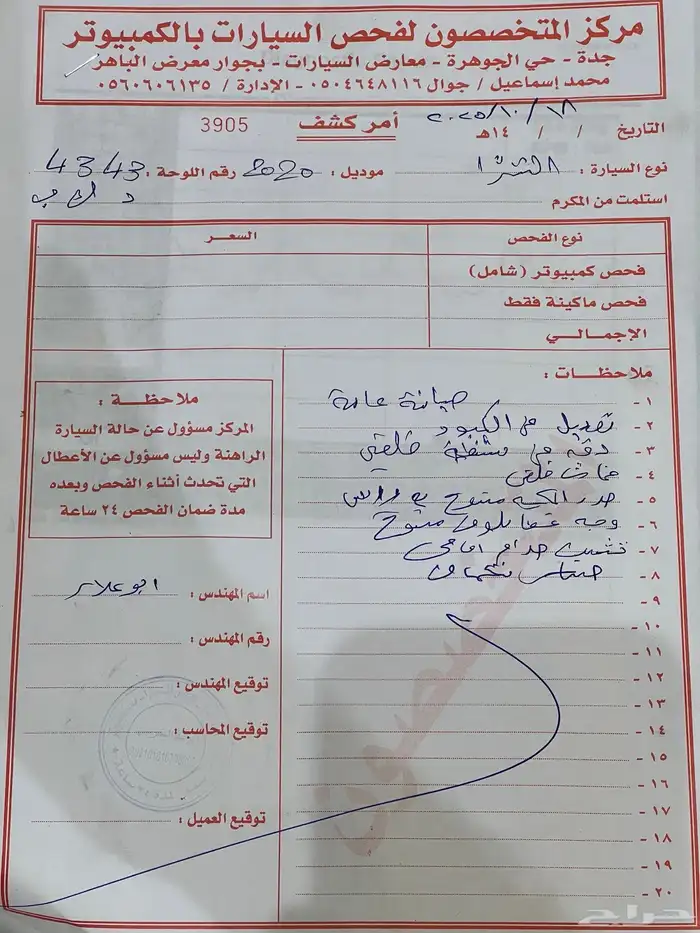 مركز المتخصصون لفحص السيارات بالكمبيوتر
جدة - حي الجوهرة - معارض السيارات - بجوار معرض الباهز
محمد إسماعيل / جوال ٠٥٠٤٦٤٨١١٦ - الإدارة / ٠٥٦٠٦٠٦١٣٥
التاريخ / / ١٤هـ ٢٠٢٥/١٠/١٨
أمر كشف 3905
نوع السيارة : النترا موديل : 2020 رقم اللوحة : 4343
استلمت من المكرم
نوع الفحص السعر
فحص كمبيوتر (شامل)
فحص ماكينة فقط
الإجمالي
ملاحظات :
١ - صيانة عامة
٢ - تعديل في الكبود
٣ - دقه في شنطة خلفي
٤ -
٥ - صدر
٦ - وجه
٧ - تشييك صدام امامي
٨ -
٩ -
١٠ -
١١ -
١٢ -
١٣ -
١٤ -
١٥ -
١٦ -
١٧ -
١٨ -
١٩ -
٢٠ -
ملاحظة :
المركز مسؤول عن حالة السيارة
الراهنة وليس مسؤول عن الأعطال
التي تحدث أثناء الفحص وبعده
مدة ضمان الفحص ٢٤ ساعة
اسم المهندس : ابو علاء
رقم المهندس :
توقيع المهندس :
توقيع المحاسب :
توقيع العميل :
المتخصصون
حراج